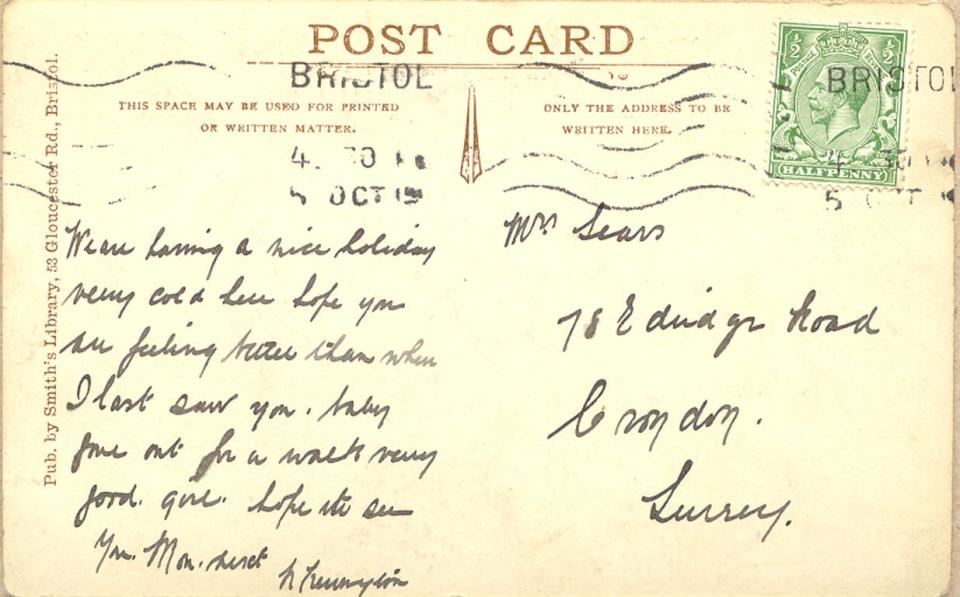 POST CARD
BRISTOL
THIS SPACE MAY BE USED FOR PRINTED
OR WRITTEN MATTER.
4. 30
5 OCT
ONLY THE ADDRESS TO BE
WRITTEN HERE.
½ ½
POSTAGE
HALFPENNY
BRISTOL
4 30
5 OCT
Pub. by Smith's Library, 53 Gloucester Rd., Bristol.
We are having a nice holiday
very cold here hope you
are feeling better than when
I last saw you. baby
gone out for a walk very
good. girl. hope to see
you. Mon. next
Mrs Sears
78 Edridge Road
Croydon.
Surrey.